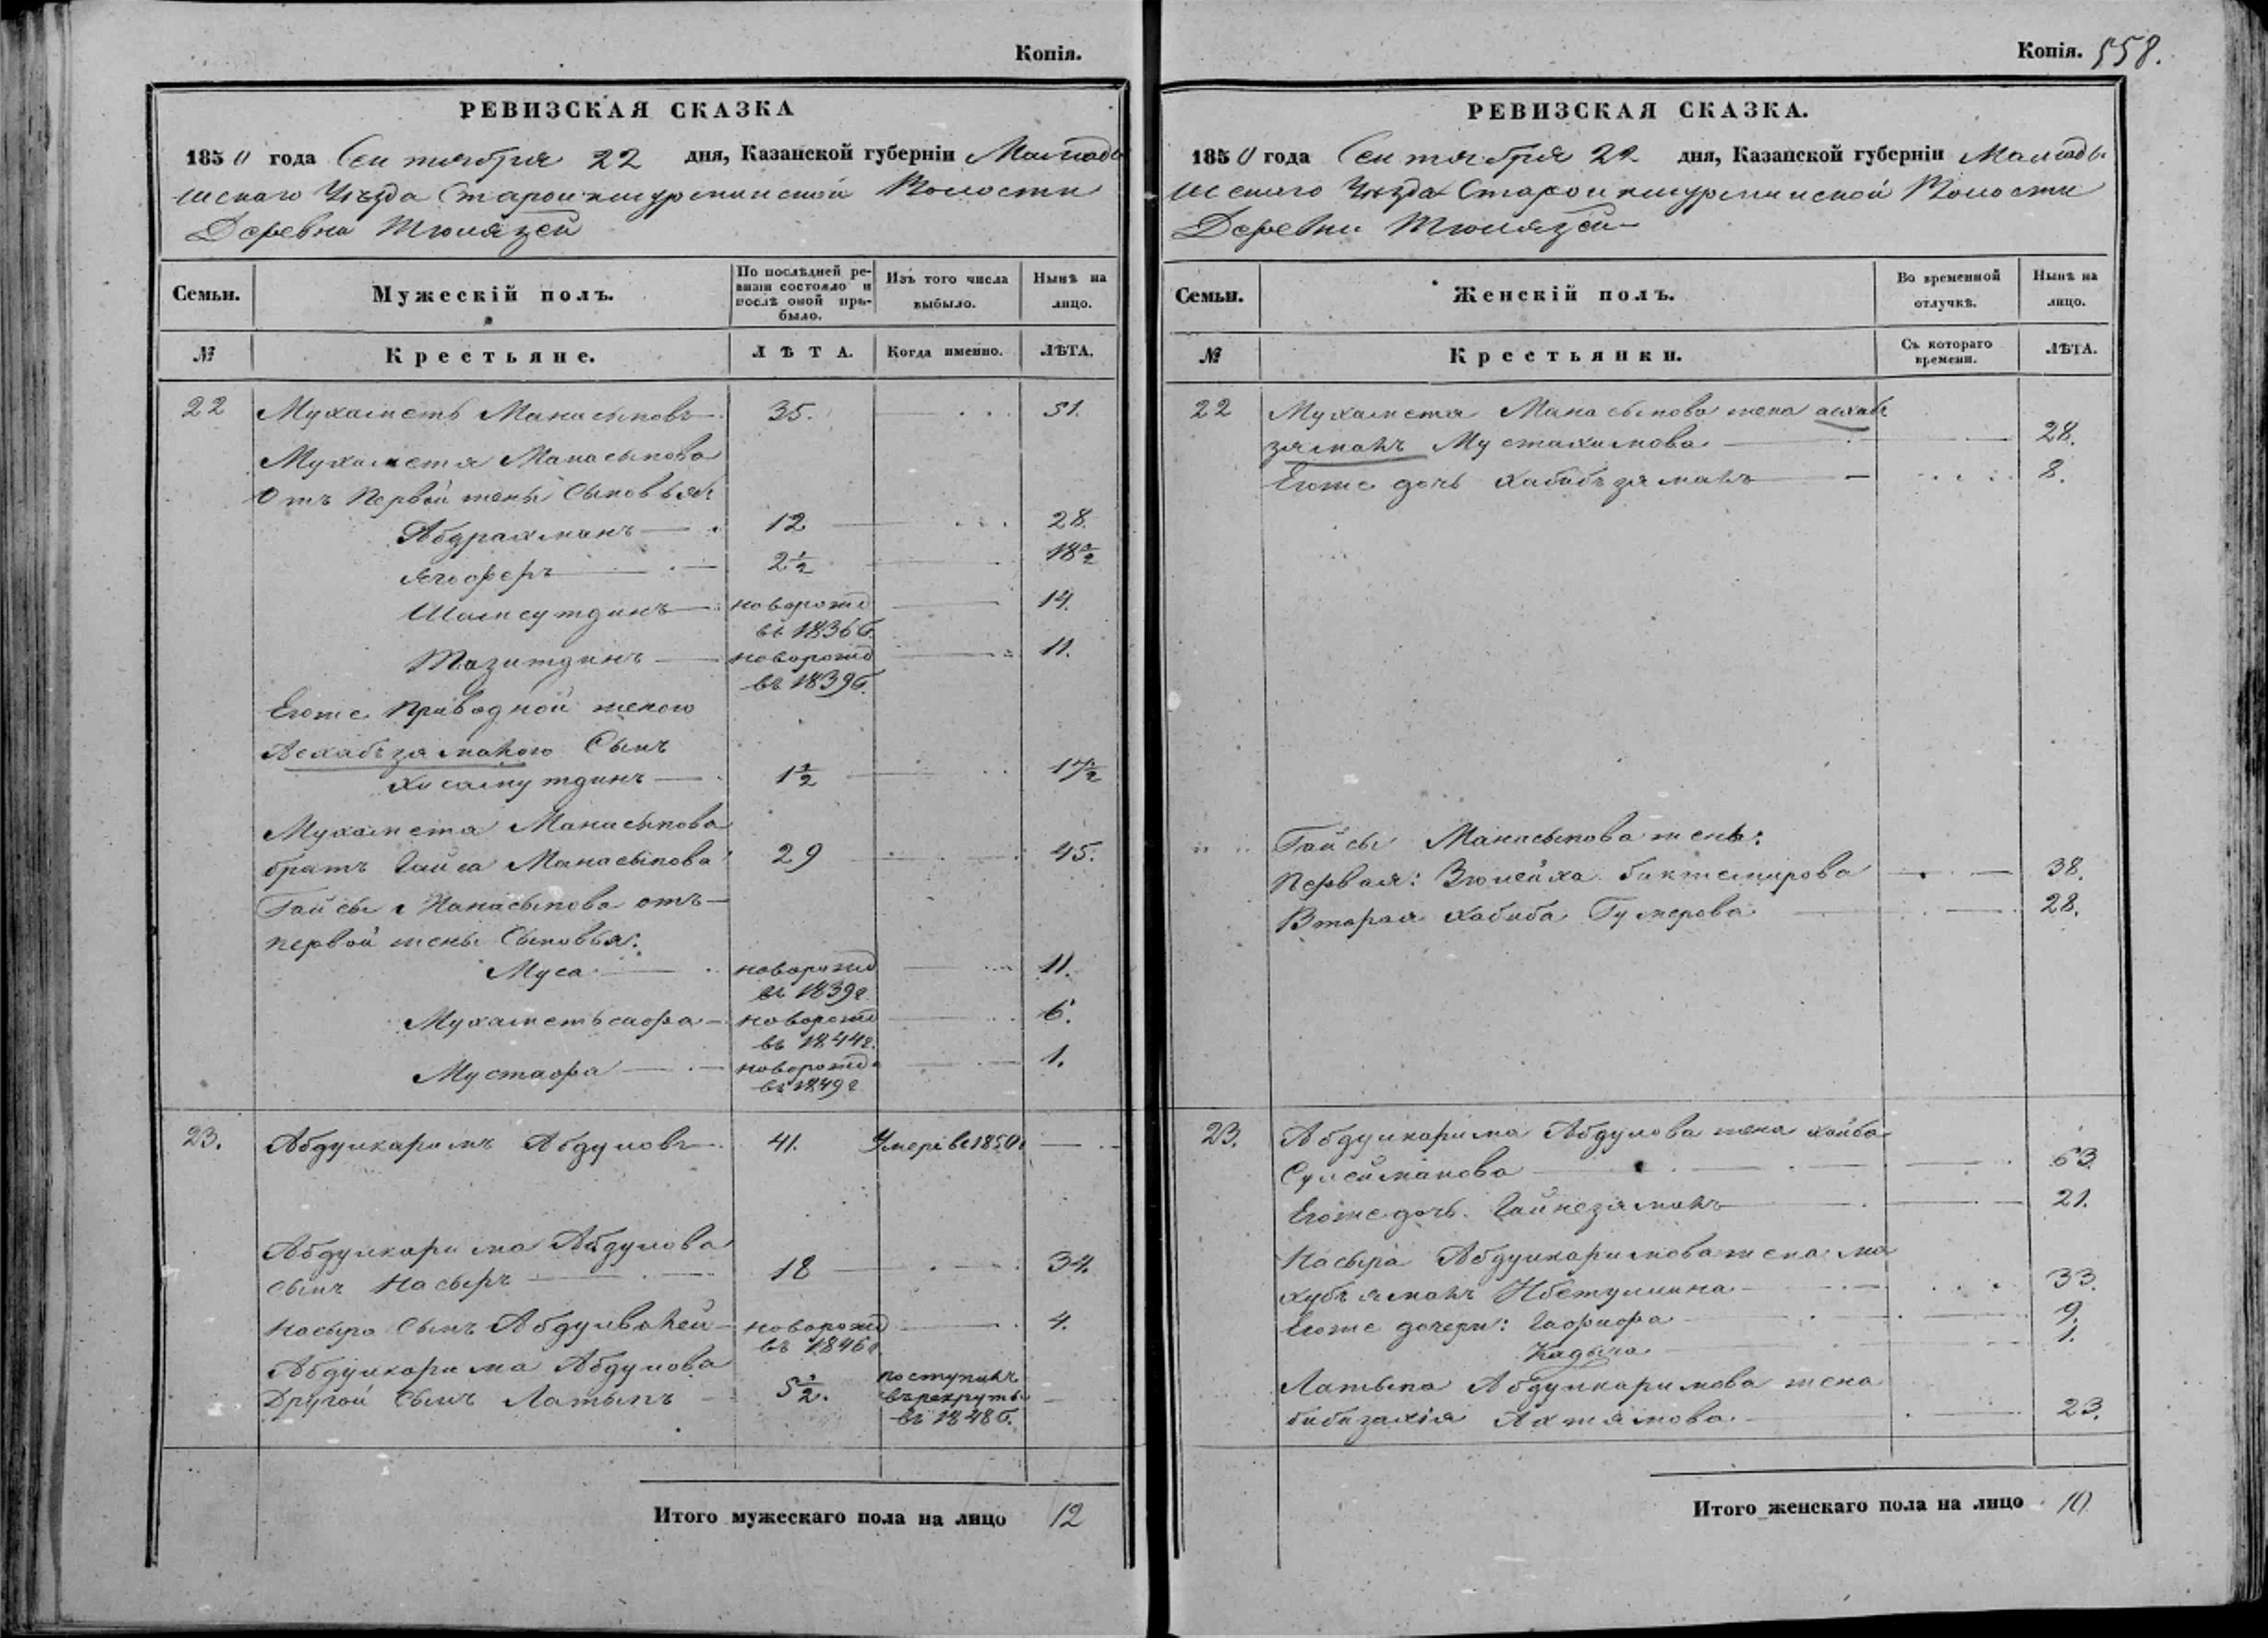 Копія.
РЕВИЗСКАЯ СКАЗКА
1850 года Сентября 22 дня, Казанской губерніи Мамады
шскаго Уѣзда Староикшурминской Волости
Деревни Тюлязей
Семьи. Мужескій полъ. По послѣдней ревизіи состояло и послѣ оной прибыло. Изъ того числа выбыло. Нынѣ на лицо.
№ Крестьяне. ЛѢТА. Когда именно. ЛѢТА.
22 Мухаметь Манасыповъ 35. 51.
Мухаметя Манасыпова
Отъ Первой жены Сыновья
Абдрахманъ 12 28.
Ягоферъ 2½ 18½
Шамсутдинъ новорожд 14.
въ 1836 г.
Тазитдинъ новорожд 11.
въ 1839 г.
Егоже приводной женою
Асхабъзяманою Сынъ
Хисамутдинъ 1½ 17½
Мухамета Манасыпова
братъ Гайса Манасыпова 29 45.
Гайсы Манасыпова отъ
первой жены Сыновья:
Муса новорожд 11.
въ 1839 г
Мухаметьсафа новорожд 6.
въ 1844 г.
Мустафа новорожд 1.
въ 1849 г
23. Абдулкаримъ Абдуловъ 41. Умеръ въ 1850 г
Абдулкарима Абдулова
сынъ Насыръ 18 34.
Насыра Сынъ Абдулваһей новорожд 4.
въ 1846 г.
Абдулкарима Абдулова
Другой Сынъ Латыпъ 5½. поступилъ
въ рекруты
въ 1848 г.
Итого мужескаго пола на лицо 12
Копія. 558.
РЕВИЗСКАЯ СКАЗКА.
1850 года Сентября 22 дня, Казанской губерніи Мамады
шскаго Уѣзда Староикшурминской Волости
Деревни Тюлязей
Семьи. Женскій полъ. Во временной отлучкѣ. Нынѣ на лицо.
№ Крестьянки. Съ котораго времени. ЛѢТА.
22 Мухаметя Манасыпова жена асхабъ
зямань Мустакимова 28.
Егоже дочь Хабибъзямань 8.
Гайсы Манасыпова жены:
Первая: Зюлейха биктемирова 38.
Вторая Хабиба Гумерова 28.
23. Абдулкарима Абдулова жена хайба
Сулейманова 63.
Егоже дочь Гайнезямань 21.
Насыра Абдулкаримова жена ма
хубъямань Ибетуллина 33.
Егоже дочери: Гафифа 9.
Кадыча 1.
Латыпа Абдулкаримова жена
бибизахія Ахтямова 23.
Итого женскаго пола на лицо 10